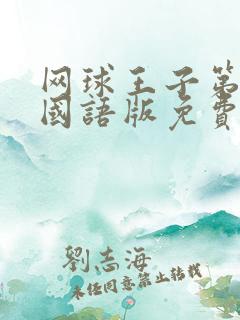 网球王子第
國語版免費
劉志海
未经同意禁止转载